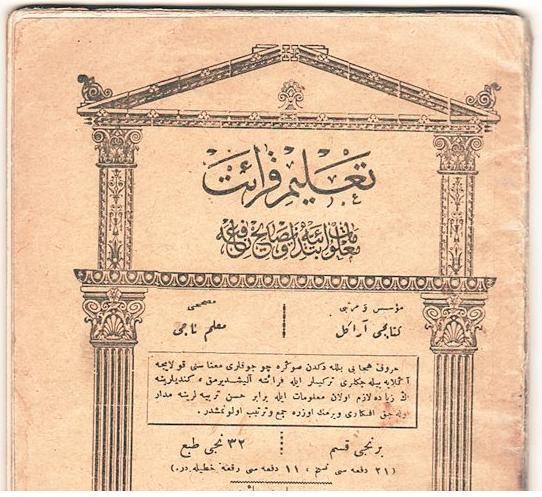 تعليم قرائت
معلومات ابتدائيه و نصايح نافعه
مؤسس و مرتبى
مصححى
كتابجى آراكل
معلم ناجى
حروف هجايى بللە دكدن صوكرە چوجوقلرى معناسنى قولايجه
آكلايه بيله جكلرى تركيبلر ايله قرائته آليشديرمق ، كنديلرينه
اڭ زياده لازم اولان معلومات ايله برابر حسن تربيه لرينه مدار
اوله جق افكارى ويرمك اوزره جمع و ترتيب اولونمشدر.
برنجى قسم
٣٢ نجى طبع
(٢١ دفعه سى نسخ ، ١١ دفعه سى رقعه خطيله در.)